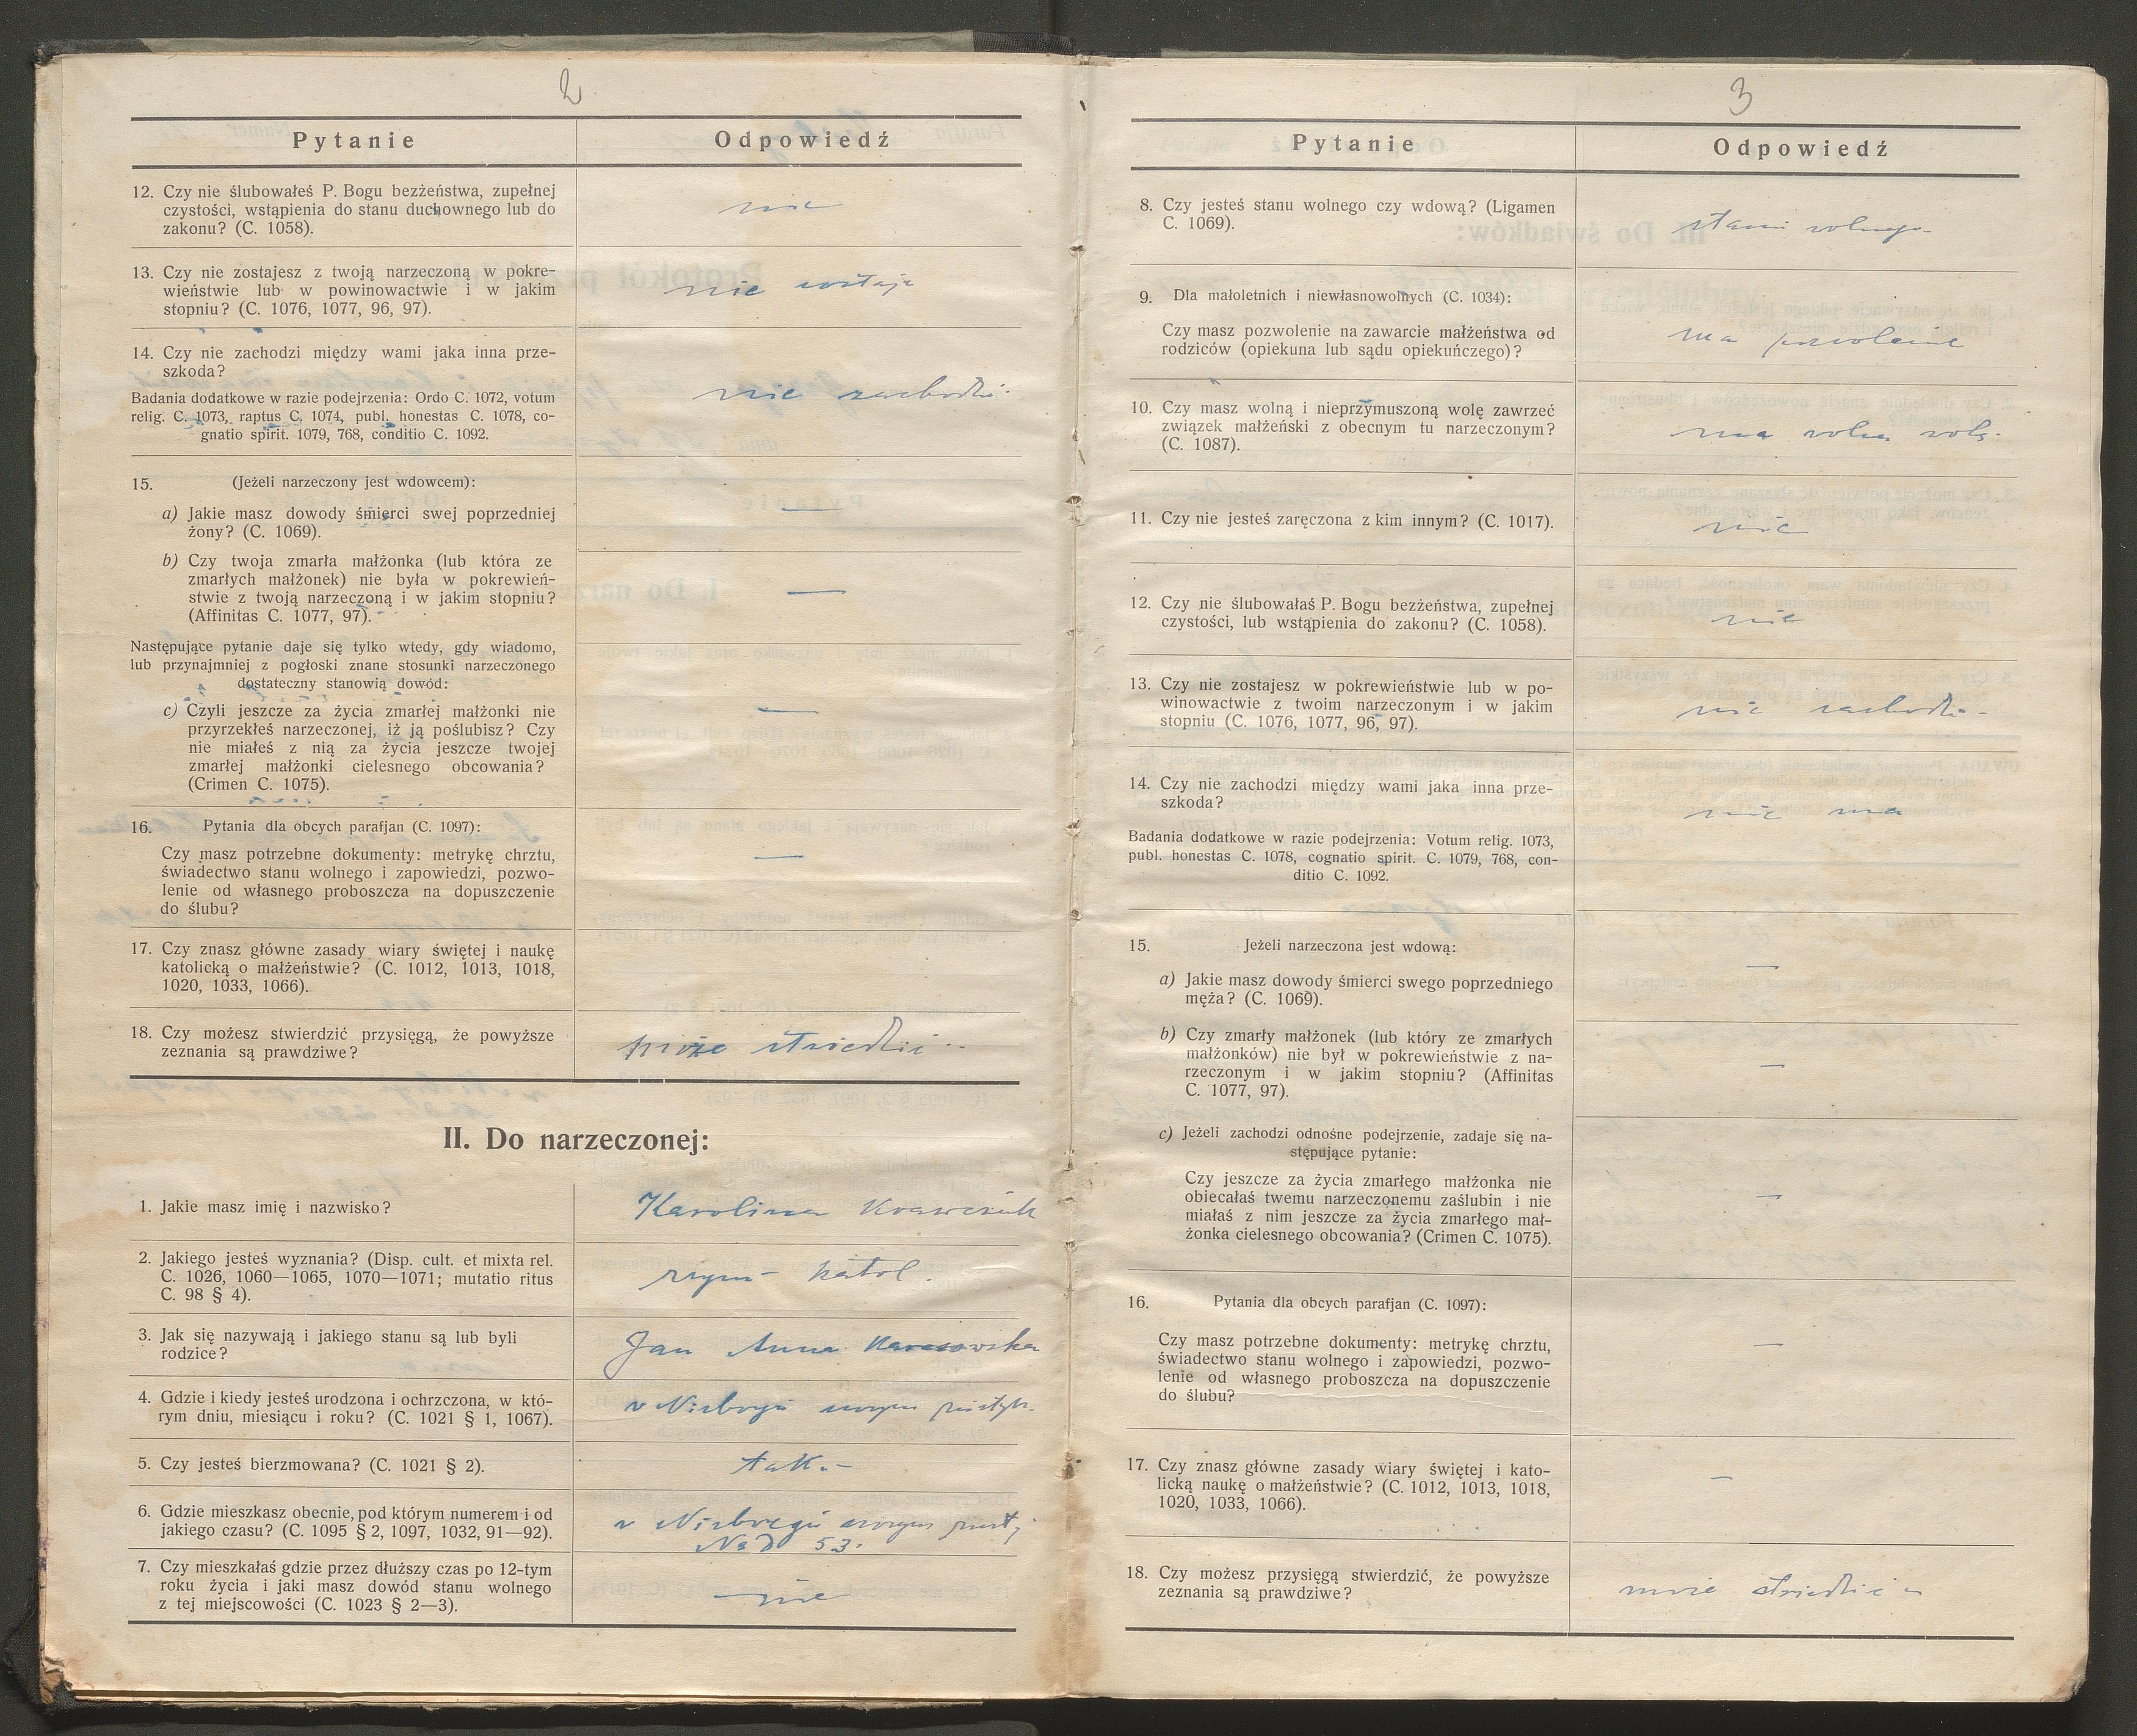 2
Pytanie
Odpowiedź
12. Czy nie ślubowałeś P. Bogu bezżeństwa, zupełnej
czystości, wstąpienia do stanu duchownego lub do
zakonu? (C. 1058).
nie
13. Czy nie zostajesz z twoją narzeczoną w pokre-
wieństwie lub w powinowactwie i w jakim
stopniu? (C. 1076, 1077, 96, 97).
nie zostaje
14. Czy nie zachodzi między wami jaka inna prze-
szkoda?
Badania dodatkowe w razie podejrzenia: Ordo C. 1072, votum
relig. C. 1073, raptus C. 1074, publ. honestas C. 1078, co-
gnatio spirit. 1079, 768, conditio C. 1092.
nie zachodzi
15. (Jeżeli narzeczony jest wdowcem):
a) Jakie masz dowody śmierci swej poprzedniej
żony? (C. 1069).
—
b) Czy twoja zmarła małżonka (lub która ze
zmarłych małżonek) nie była w pokrewień-
stwie z twoją narzeczoną i w jakim stopniu?
(Affinitas C. 1077, 97).
—
Następujące pytanie daje się tylko wtedy, gdy wiadomo,
lub przynajmniej z pogłoski znane stosunki narzeczonego
dostateczny stanowią dowód:
c) Czyli jeszcze za życia zmarłej małżonki nie
przyrzekłeś narzeczonej, iż ją poślubisz? Czy
nie miałeś z nią za życia jeszcze twojej
zmarłej małżonki cielesnego obcowania?
(Crimen C. 1075).
—
16. Pytania dla obcych parafjan (C. 1097):
Czy masz potrzebne dokumenty: metrykę chrztu,
świadectwo stanu wolnego i zapowiedzi, pozwo-
lenie od własnego proboszcza na dopuszczenie
do ślubu?
—
17. Czy znasz główne zasady wiary świętej i naukę
katolicką o małżeństwie? (C. 1012, 1013, 1018,
1020, 1033, 1066).
18. Czy możesz stwierdzić przysięgą, że powyższe
zeznania są prawdziwe?
może
II. Do narzeczonej:
1. Jakie masz imię i nazwisko?
Karolina Krawczuk
2. Jakiego jesteś wyznania? (Disp. cult. et mixta rel.
C. 1026, 1060—1065, 1070—1071; mutatio ritus
C. 98 § 4).
rzym- katol.
3. Jak się nazywają i jakiego stanu są lub byli
rodzice?
Jan Anna
4. Gdzie i kiedy jesteś urodzona i ochrzczona, w któ-
rym dniu, miesiącu i roku? (C. 1021 § 1, 1067).
w Niżborgu nowym
5. Czy jesteś bierzmowana? (C. 1021 § 2).
tak.-
6. Gdzie mieszkasz obecnie, pod którym numerem i od
jakiego czasu? (C. 1095 § 2, 1097, 1032, 91—92).
w Niżborgu nowym
NoD 53.
7. Czy mieszkałaś gdzie przez dłuższy czas po 12-tym
roku życia i jaki masz dowód stanu wolnego
z tej miejscowości (C. 1023 § 2—3).
nie
3
Pytanie
Odpowiedź
8. Czy jesteś stanu wolnego czy wdową? (Ligamen
C. 1069).
stanu wolnego-
9. Dla małoletnich i niewłasnowolnych (C. 1034):
Czy masz pozwolenie na zawarcie małżeństwa od
rodziców (opiekuna lub sądu opiekuńczego)?
ma pozwolenie
10. Czy masz wolną i nieprzymuszoną wolę zawrzeć
związek małżeński z obecnym tu narzeczonym?
(C. 1087).
ma wolna wolę-
11. Czy nie jesteś zaręczona z kim innym? (C. 1017).
nie
12. Czy nie ślubowałaś P. Bogu bezżeństwa, zupełnej
czystości, lub wstąpienia do zakonu? (C. 1058).
nie
13. Czy nie zostajesz w pokrewieństwie lub w po-
winowactwie z twoim narzeczonym i w jakim
stopniu (C. 1076, 1077, 96, 97).
nie zachodzi-
14. Czy nie zachodzi między wami jaka inna prze-
szkoda?
Badania dodatkowe w razie podejrzenia: Votum relig. 1073,
publ. honestas C. 1078, cognatio spirit. C. 1079, 768, con-
ditio C. 1092.
nie ma
15. Jeżeli narzeczona jest wdową:
a) Jakie masz dowody śmierci swego poprzedniego
męża? (C. 1069).
—
b) Czy zmarły małżonek (lub który ze zmarłych
małżonków) nie był w pokrewieństwie z na-
rzeczonym i w jakim stopniu? (Affinitas
C. 1077, 97).
—
c) Jeżeli zachodzi odnośne podejrzenie, zadaje się na-
stępujące pytanie:
Czy jeszcze za życia zmarłego małżonka nie
obiecałaś twemu narzeczonemu zaślubin i nie
miałaś z nim jeszcze za życia zmarłego mał-
żonka cielesnego obcowania? (Crimen C. 1075).
—
16. Pytania dla obcych parafjan (C. 1097):
Czy masz potrzebne dokumenty: metrykę chrztu,
świadectwo stanu wolnego i zapowiedzi, pozwo-
lenie od własnego proboszcza na dopuszczenie
do ślubu?
—
17. Czy znasz główne zasady wiary świętej i kato-
licką naukę o małżeństwie? (C. 1012, 1013, 1018,
1020, 1033, 1066).
—
18. Czy możesz przysięgą stwierdzić, że powyższe
zeznania są prawdziwe?
może